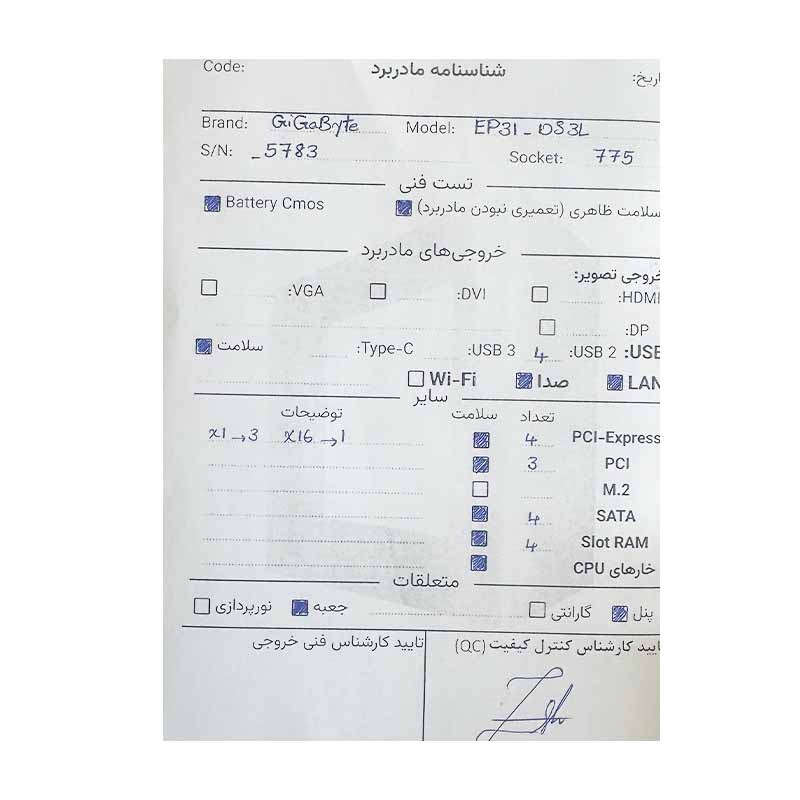 شناسنامه مادربرد Code:
Brand: GiGaByte Model: EP31_DS3L
S/N: _5783 Socket: 775
تست فنی
سلامت ظاهری (تعمیری نبودن مادربرد) Battery Cmos
خروجی‌های مادربرد
خروجی تصویر:
HDMI: DVI: VGA:
DP:
USB: USB 2: 4 USB 3: Type-C: سلامت
LAN صدا Wi-Fi
سایر
تعداد سلامت توضیحات
PCI-Express 4 x1→3 x16→1
PCI 3
M.2
SATA 4
Slot RAM 4
خارهای CPU
متعلقات
پنل گارانتی جعبه نورپردازی
تایید کارشناس کنترل کیفیت (QC) تایید کارشناس فنی خروجی